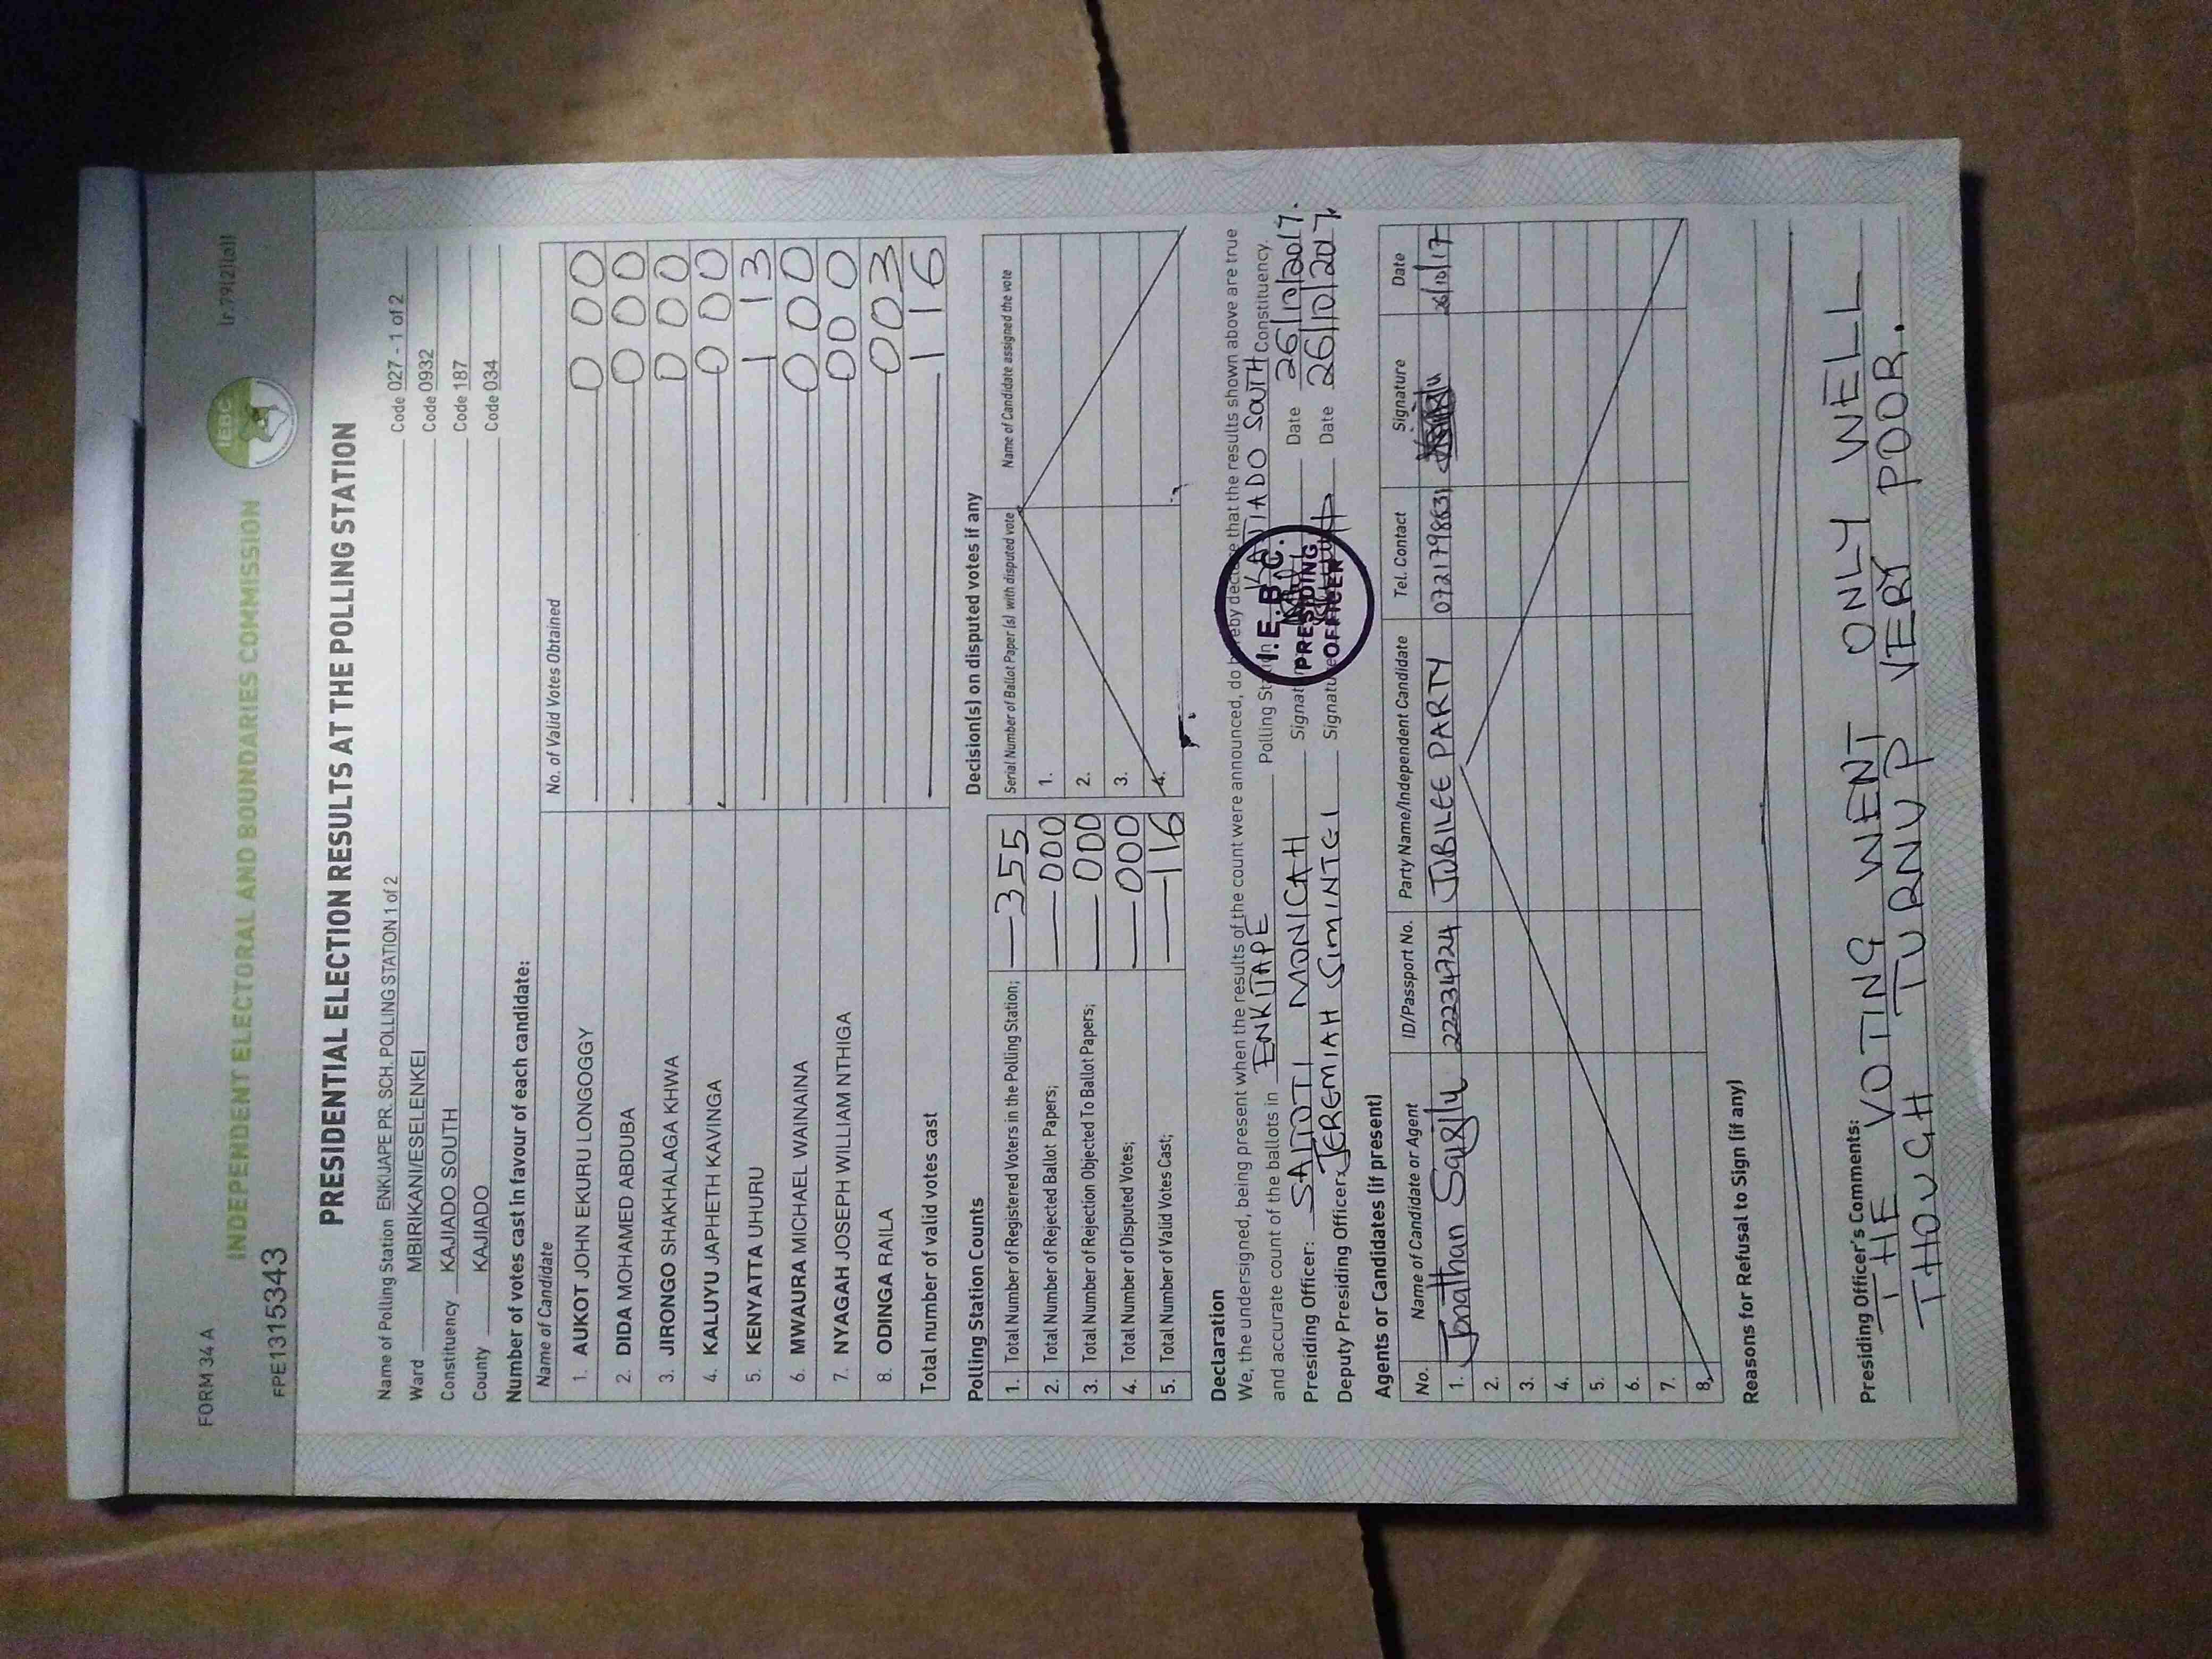 FORM 34 A
(r.79(2)(a))
IEBC
INDEPENDENT ELECTORAL AND BOUNDARIES COMMISSION
FPE1315343
PRESIDENTIAL ELECTION RESULTS AT THE POLLING STATION
Name of Polling Station ENKIJAPE PR. SCH. POLLING STATION 1 of 2 Code 027 - 1 of 2
Ward MBIRIKANI/ESELENKEI Code 0932
Constituency KAJIADO SOUTH Code 187
County KAJIADO Code 034
Number of votes cast in favour of each candidate:
Name of Candidate No. of Valid Votes Obtained
1. AUKOT JOHN EKURU LONGOGGY 000
2. DIDA MOHAMED ABDUBA 000
3. JIRONGO SHAKHALAGA KHWA 000
4. KALUYU JAPHETH KAVINGA 000
5. KENYATTA UHURU 113
6. MWAURA MICHAEL WAINAINA 000
7. NYAGAH JOSEPH WILLIAM NTHIGA 000
8. ODINGA RAILA 003
Total number of valid votes cast 116
Polling Station Counts
1. Total Number of Registered Voters in the Polling Station; 355
2. Total Number of Rejected Ballot Papers; 000
3. Total Number of Rejection Objected To Ballot Papers; 000
4. Total Number of Disputed Votes; 000
5. Total Number of Valid Votes Cast; 116
Decision(s) on disputed votes if any
Serial Number of Ballot Paper (s) with disputed vote Name of Candidate assigned the vote
1.
2.
3.
4.
Declaration
We, the undersigned, being present when the results of the count were announced, do hereby declare that the results shown above are true
and accurate count of the ballots in ENKIJAPE Polling Station KAJIADO SOUTH Constituency.
Presiding Officer: SAITOTI MONICAH Signature Date 26/10/2017.
Deputy Presiding Officer: JEREMIAH SIMINTEI Signature Date 26/10/2017.
I.E.B.C.
PRESIDING
OFFICER
Agents or Candidates (if present)
No. Name of Candidate or Agent ID/Passport No. Party Name/Independent Candidate Tel. Contact Signature Date
1. Jonathan 22234724 JUBILEE PARTY 0721798631 26/10/17
2.
3.
4.
5.
6.
7.
8.
Reasons for Refusal to Sign (if any)
Presiding Officer's Comments:
THE VOTING WENT ONLY WELL
THOUGH TURNUP VERY POOR.